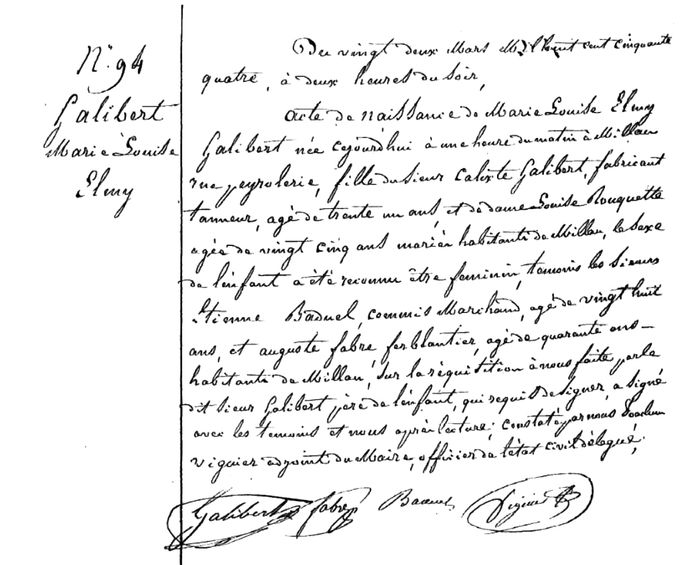 N.° 94
Galibert
Marie Louise
Elmy
Du vingt deux Mars Mil huit cent cinquante
quatre, à deux heures du soir,
acte de naissance de Marie Louise Elmy
Galibert née cejourd'hui à une heure du matin à Millau
rue peyrolerie, fille du sieur Calixte Galibert, fabricant
tanneur, agé de trente un ans, et de dame Louise Rouquette
agée de vingt cinq ans mariés habitants de Millau, le sexe
de l'enfant a été reconnu être feminin, temoins les sieurs
Etienne Baduel, commis Marchand, agé de vingt huit
ans, et auguste fabre ferblantier, agé de quarante ans
habitants de Millau, sur la réquisition à nous faite par le
dit sieur Galibert père de l'enfant, qui requis de signer, a signé
avec les temoins et nous après lecture; constaté par nous
viguier adjoint du Maire, officier de l'état civil délégué;
Galibert fabre Baduel Viguier